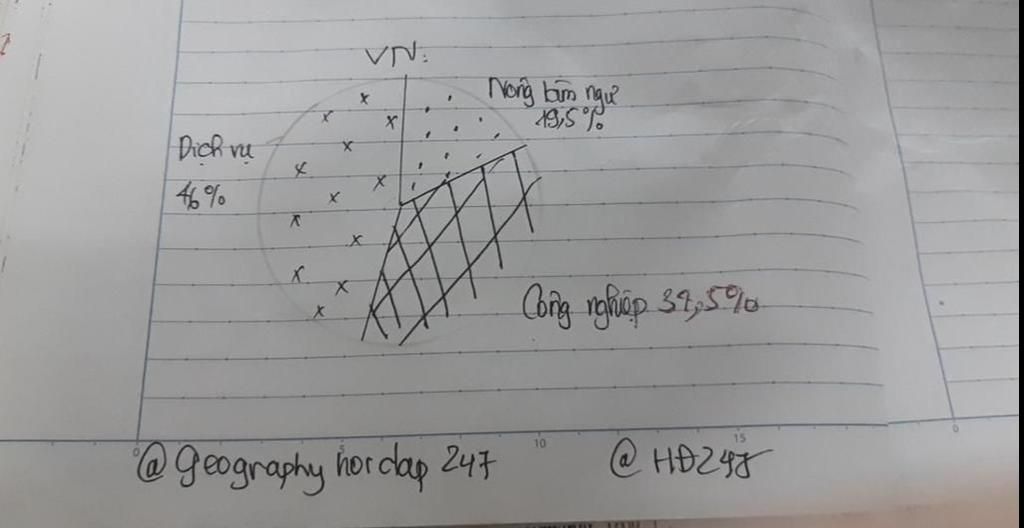 VN:
Nông lâm ngư
19,5%
Dịch vụ
46%
Công nghiệp 34,5%
0 5 10 15 0
@ geography hoidap 247 @ HĐ247